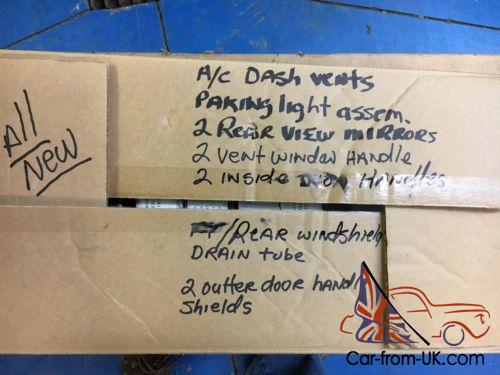 All
New
A/C Dash vents
Paking light assem.
2 Rear view mirrors
2 vent window Handle
2 inside Handles
/Rear windshield
Drain tube
2 outter door handl
shields
Car-from-UK.com